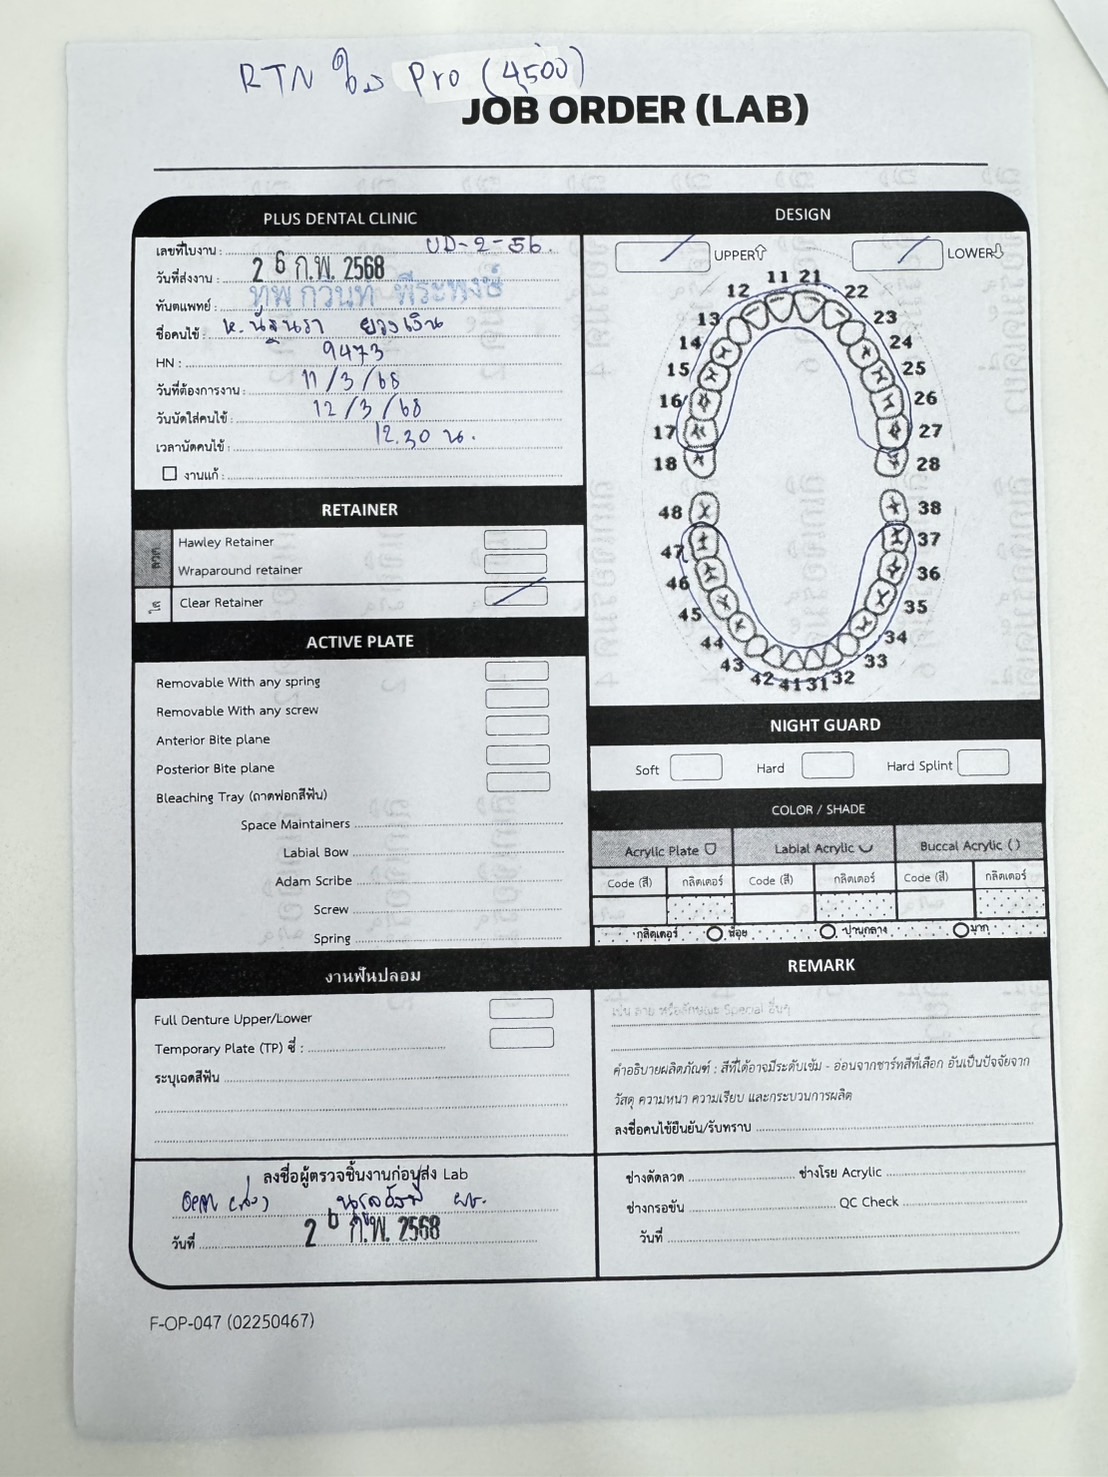 RTN ใส Pro (4,500)
JOB ORDER (LAB)
PLUS DENTAL CLINIC
เลขที่ใบงาน : UD-2-56.
วันที่ส่งงาน : 26 ก.พ. 2568
ทันตแพทย์ : ทพ กวินท์ พีระพงษ์
ชื่อคนไข้ :
HN : 9473
วันที่ต้องการงาน : 11/3/68
วันนัดใส่คนไข้ : 12/3/68
เวลานัดคนไข้ : 12.30 น.
งานแก้ :
RETAINER
ลวด
Hawley Retainer
Wraparound retainer
ใส
Clear Retainer
ACTIVE PLATE
Removable With any spring
Removable With any screw
Anterior Bite plane
Posterior Bite plane
Bleaching Tray (ถาดฟอกสีฟัน)
Space Maintainers
Labial Bow
Adam Scribe
Screw
Spring
งานฟันปลอม
Full Denture Upper/Lower
Temporary Plate (TP) ซี่ :
ระบุเฉดสีฟัน
ลงชื่อผู้ตรวจชิ้นงานก่อนส่ง Lab
วันที่ 26 ก.พ. 2568
DESIGN
UPPER LOWER
11 21
12 22
13 23
14 24
15 25
16 26
17 27
18 28
48 38
47 37
46 36
45 35
44 34
43 33
42 41 31 32
NIGHT GUARD
Soft Hard Hard Splint
COLOR / SHADE
Acrylic Plate Labial Acrylic Buccal Acrylic ( )
Code (สี) กลิตเตอร์ Code (สี) กลิตเตอร์ Code (สี) กลิตเตอร์
กลิตเตอร์ น้อย ปานกลาง มาก
REMARK
เช่น ลาย หรือลักษณะ Special อื่นๆ
คำอธิบายผลิตภัณฑ์ : สีที่ได้อาจมีระดับเข้ม - อ่อนจากชาร์ทสีที่เลือก อันเป็นปัจจัยจาก
วัสดุ ความหนา ความเรียบ และกระบวนการผลิต
ลงชื่อคนไข้ยืนยัน/รับทราบ
ช่างดัดลวด ช่างโรย Acrylic
ช่างกรอขัน QC Check
วันที่
F-OP-047 (02250467)